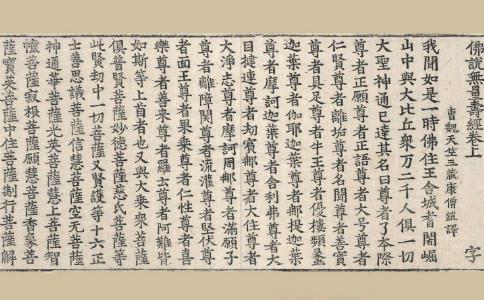 佛說無量壽經卷上 字
曹魏天竺三藏康僧鎧譯
我聞如是一時佛住王舍城耆闍崛
山中與大比丘眾萬二千人俱一切
大聖神通已達其名曰尊者了本際
尊者正願尊者正語尊者大号尊者
仁賢尊者離垢尊者名聞尊者善實
尊者具足尊者牛王尊者優樓頻蠡
迦葉尊者伽耶迦葉尊者那提迦葉
尊者摩訶迦葉尊者舍利弗尊者大
目揵連尊者劫賓那尊者大住尊者
大淨志尊者摩訶周那尊者滿願子
尊者離障閡尊者流灌尊者堅伏尊
者面王尊者果乘尊者仁性尊者喜
樂尊者善來尊者羅云尊者阿難皆
如斯等上首者也又與大乘眾菩薩
俱普賢菩薩妙德菩薩慈氏菩薩等
此賢劫中一切菩薩又賢護等十六正
士善思議菩薩信慧菩薩空無菩薩
神通華菩薩光英菩薩慧上菩薩智
幢菩薩寂根菩薩願慧菩薩香象菩
薩寶英菩薩中住菩薩制行菩薩解